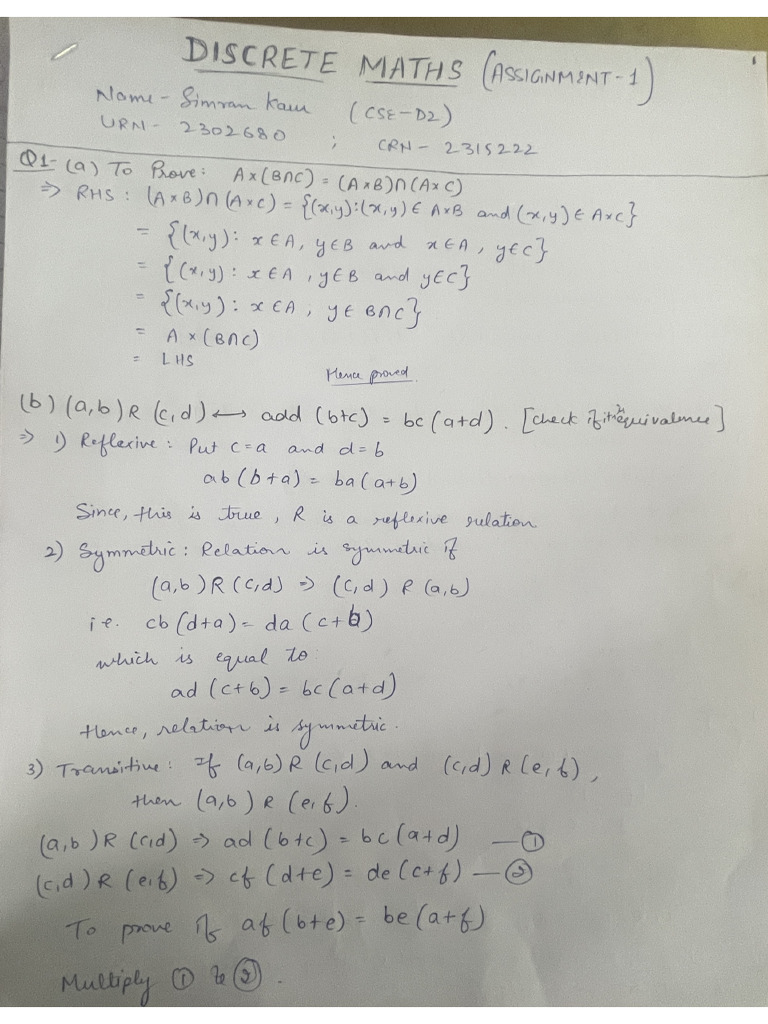 DISCRETE MATHS (ASSIGNMENT-1)
Name - Simran Kaur (CSE-D2)
URN - 2302680 ; CRN - 2315222
Q1- (a) To Prove: A×(B∩C) = (A×B)∩(A×C)
⇒ RHS: (A×B)∩(A×C) = {(x,y):(x,y)∈ A×B and (x,y)∈ A×C}
= {(x,y): x∈A, y∈B and x∈A, y∈C}
= {(x,y): x∈A, y∈B and y∈C}
= {(x,y): x∈A, y∈ B∩C}
= A×(B∩C)
= LHS
Hence proved.
(b) (a,b) R (c,d) ↔ add (b+c) = bc(a+d). [check if it's equivalence]
⇒ 1) Reflexive: Put c=a and d=b
ab(b+a) = ba(a+b)
Since, this is true, R is a reflexive relation
2) Symmetric: Relation is symmetric if
(a,b)R(c,d) ⇒ (c,d) R (a,b)
i.e. cb(d+a) = da(c+b)
which is equal to:
ad(c+b) = bc(a+d)
Hence, relation is symmetric.
3) Transitive: If (a,b)R(c,d) and (c,d)R(e,f),
then (a,b) R (e,f).
(a,b)R(c,d) ⇒ ad(b+c) = bc(a+d) — ①
(c,d)R(e,f) ⇒ cf(d+e) = de(c+f) — ②
To prove if af(b+e) = be(a+f)
Multiply ① & ②.